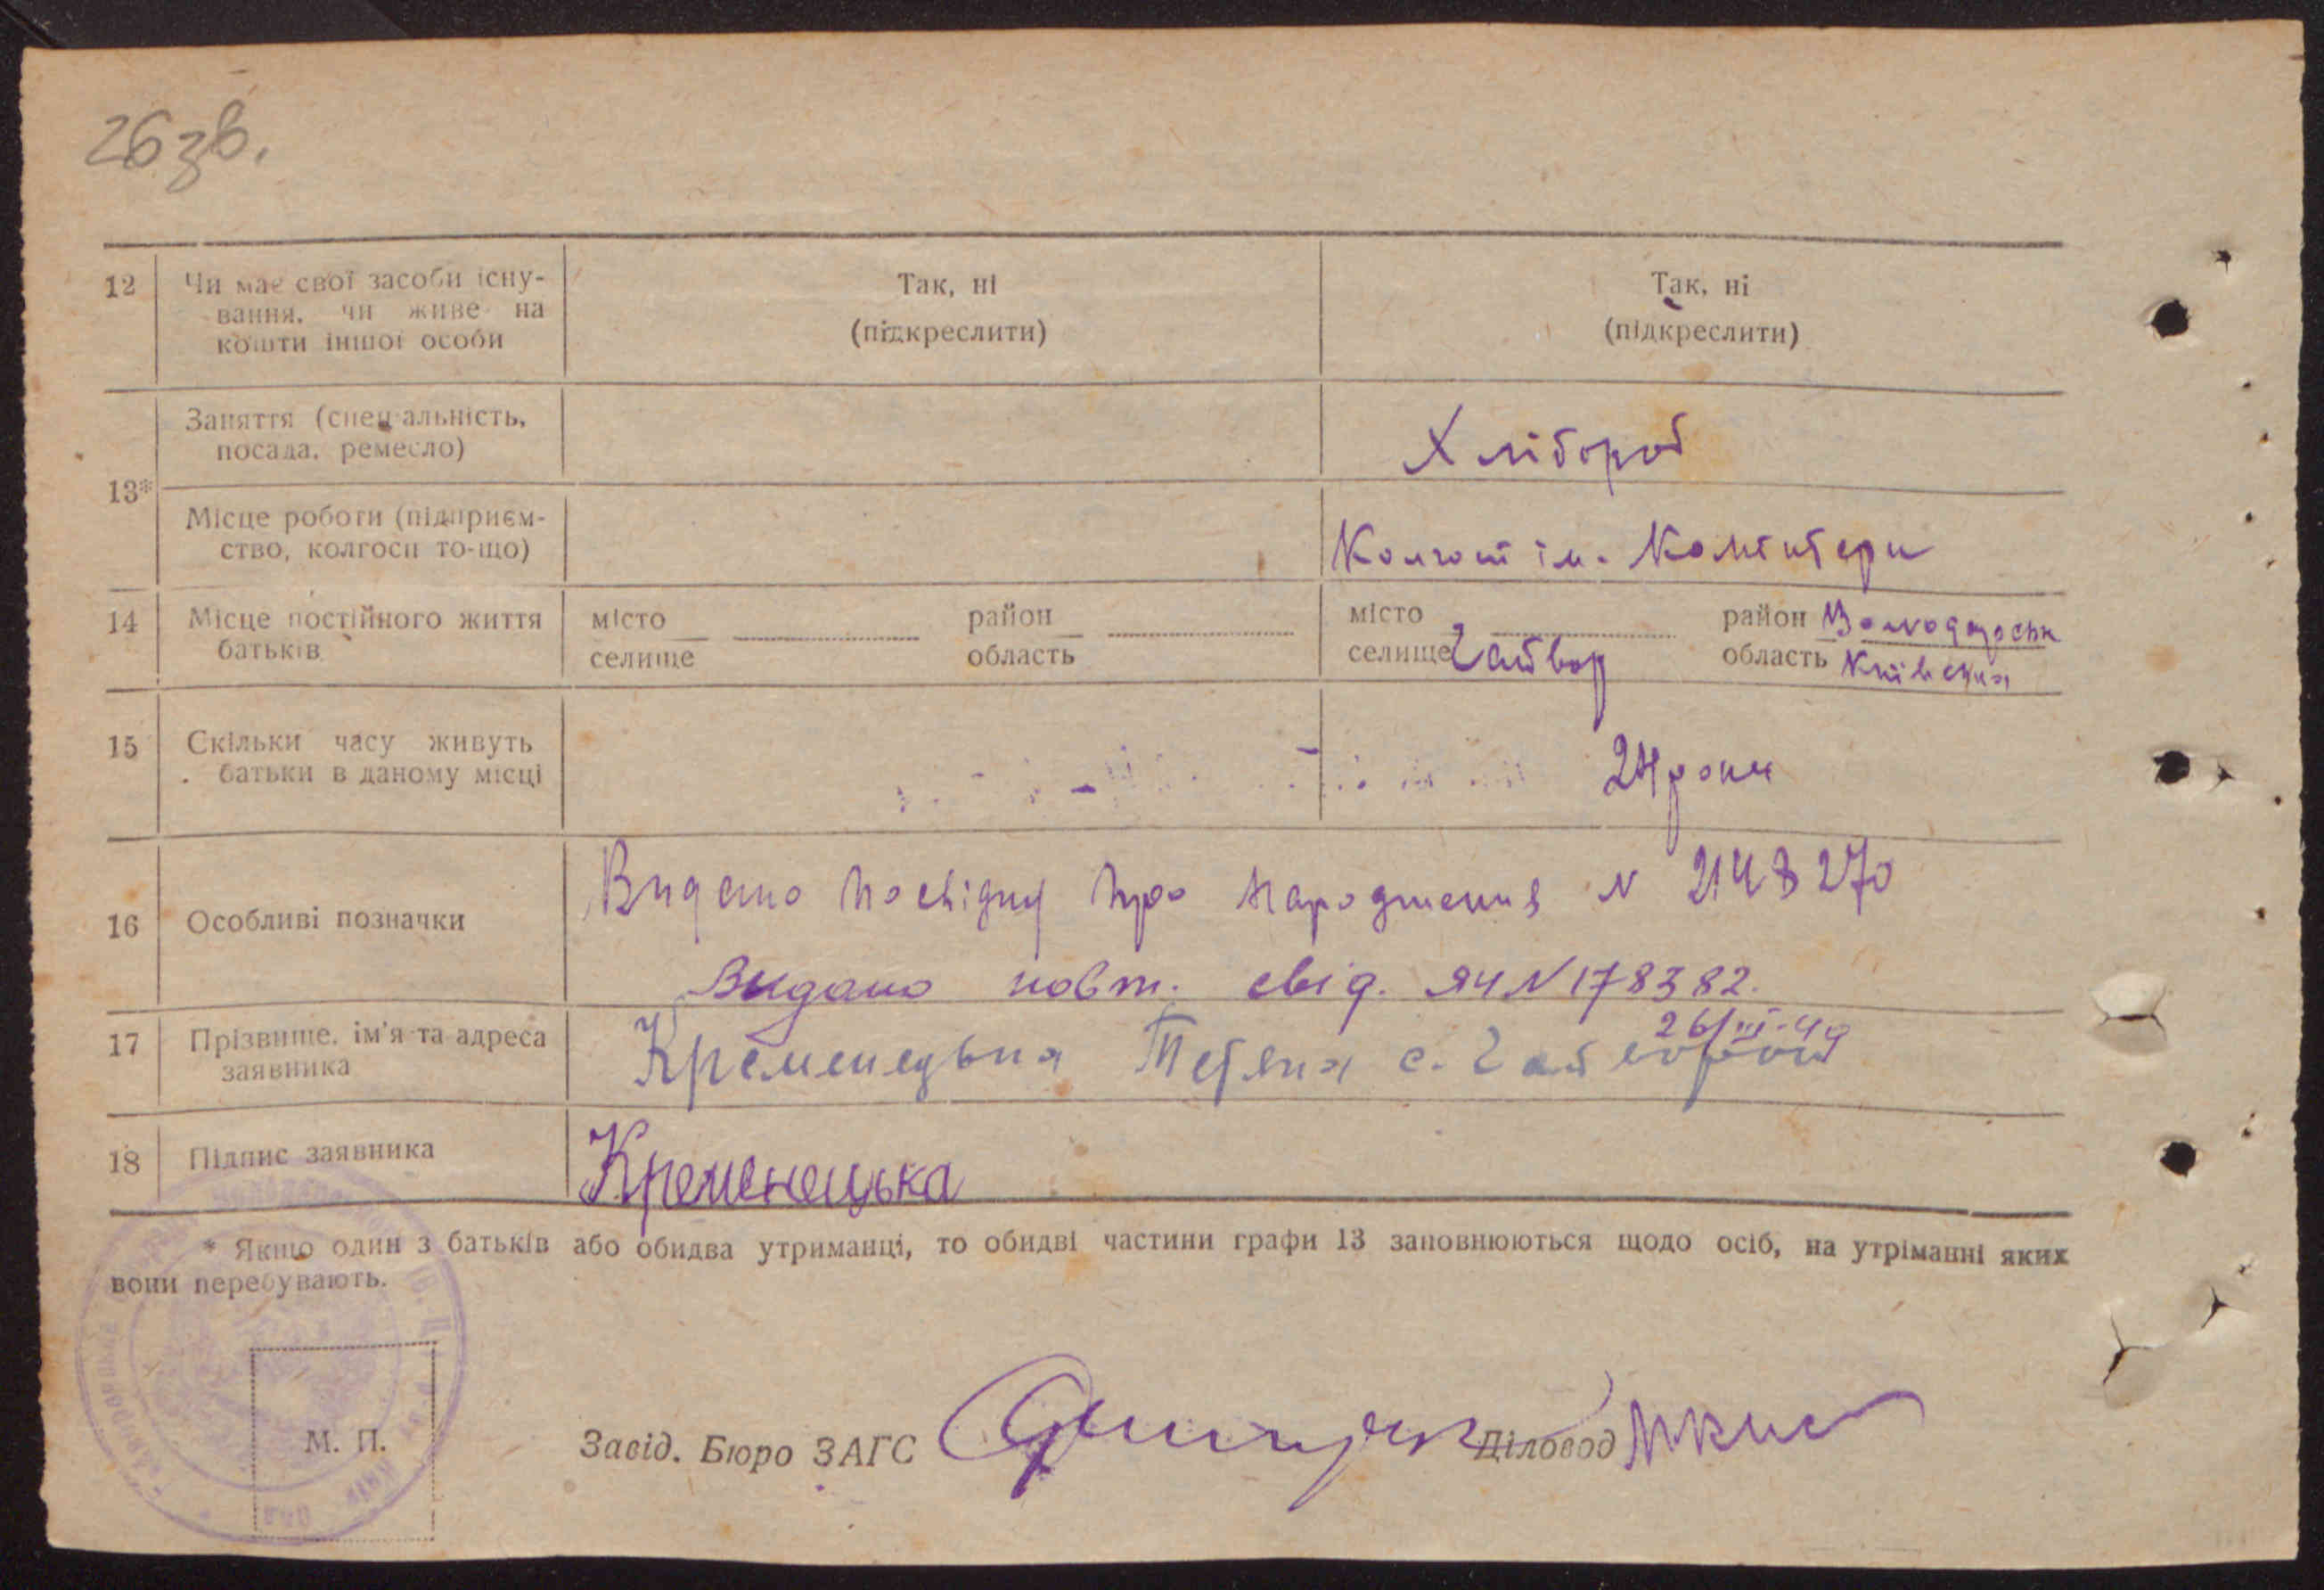 26 зв.
12 Чи має свої засоби існу-
вання, чи живе на
кошти іншої особи
Так, ні
(підкреслити)
Так, ні
(підкреслити)
13*
Заняття (спеціальність,
посада, ремесло)
Хлібороб
Місце роботи (підприєм-
ство, колгосп то-що)
Колгосп ім. Комінтерн
14 Місце постійного життя
батьків
місто
селище
район
область
місто
селище Гайвор
район Володарськ
область Київська
15 Скільки часу живуть
батьки в даному місці
24 роки
16 Особливі позначки
Видано посвідку про народження N 2148270
Видано повт. свід. ЯЧ N 178382.
26/III-49
17 Прізвище, ім'я та адреса
заявника
Кременецька Тетяна с.
18 Підпис заявника
Кременецька
* Якщо один з батьків або обидва утриманці, то обидві частини графи 13 заповнюються щодо осіб, на утріманні яких
вони перебувають.
М. П.
Завід. Бюро ЗАГС
Діловод